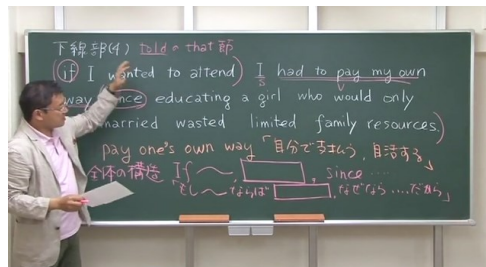 下線部(4) told の that 節
(if I wanted to attend) I had to pay my own
S
way since educating a girl who would only
married wasted limited family resources.)
pay one's own way「自分で支払う, 自活する」
全体の構造 If ～, , since …
「もし～ならば , なぜなら ….だから」